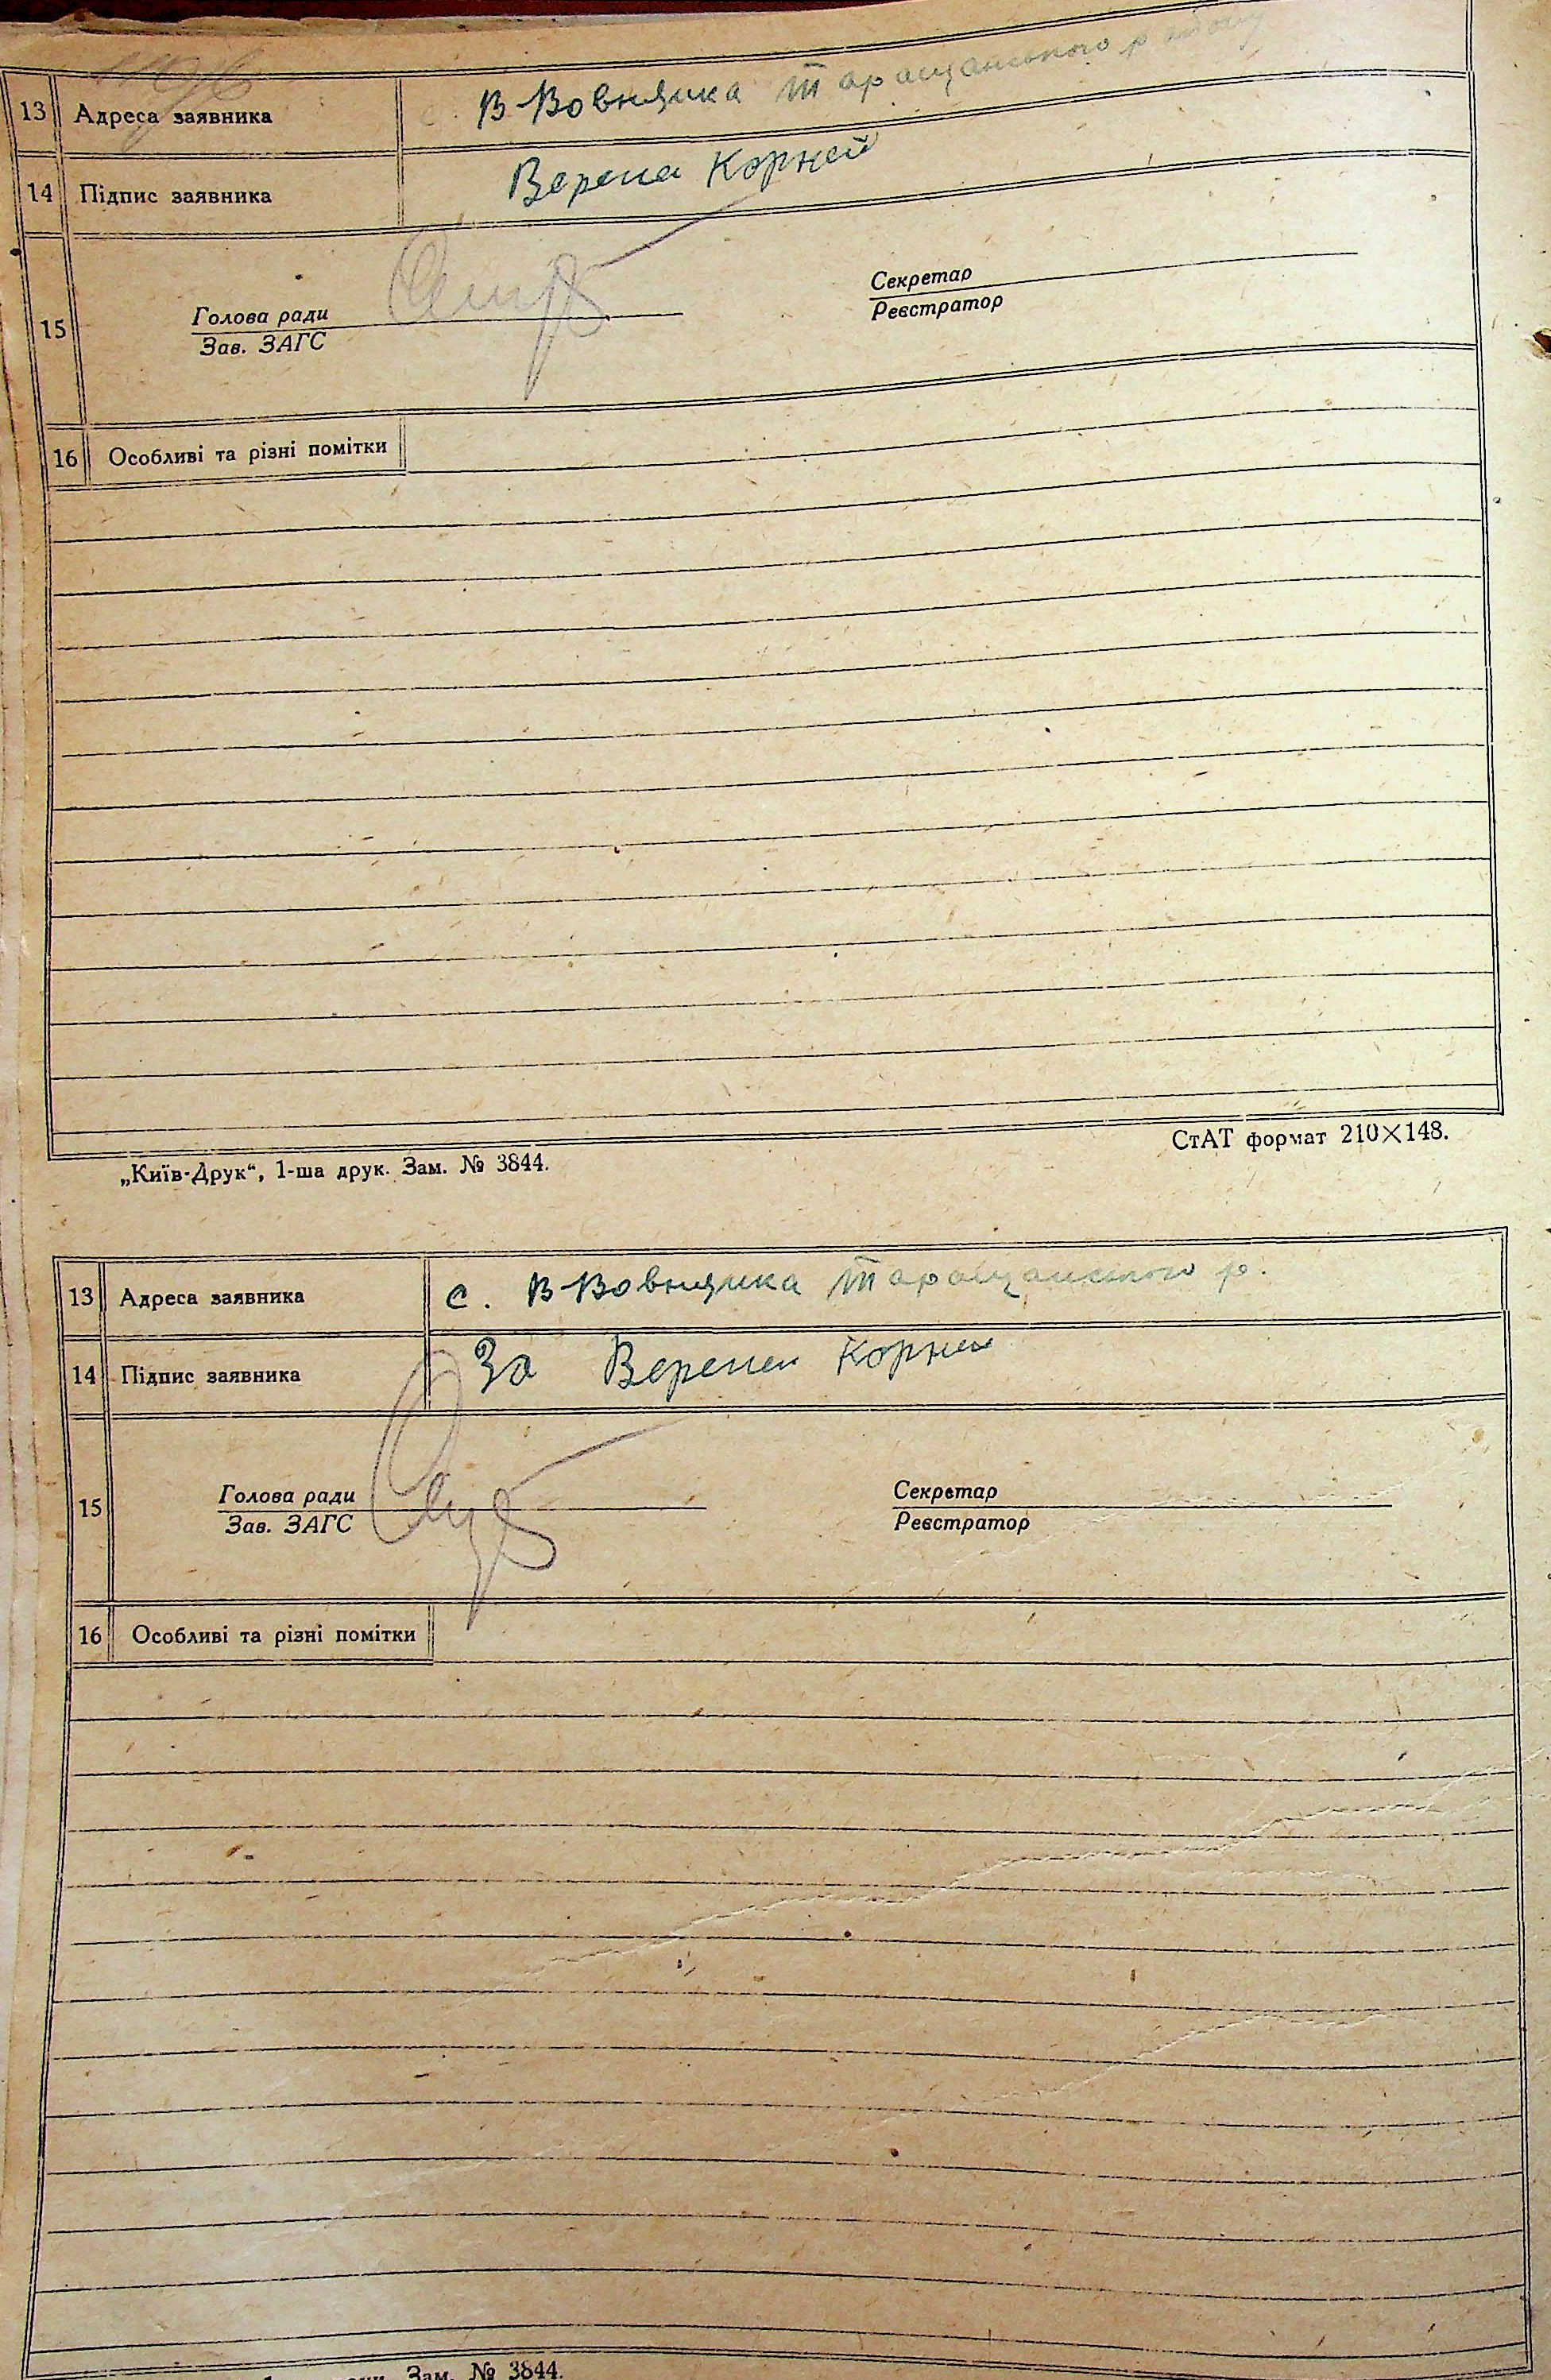 13 Адреса заявника с. В-Вовнянка Таращанського району
14 Підпис заявника Верена Корней
15 Голова ради Секретар
Зав. ЗАГС Реєстратор
16 Особливі та різні помітки
СтАТ формат 210×148.
„Київ-Друк“, 1-ша друк. Зам. № 3844.
13 Адреса заявника с. В-Вовнянка Таращанського р.
14 Підпис заявника За Корней
15 Голова ради Секретар
Зав. ЗАГС Реєстратор
16 Особливі та різні помітки
Зам. № 3844.